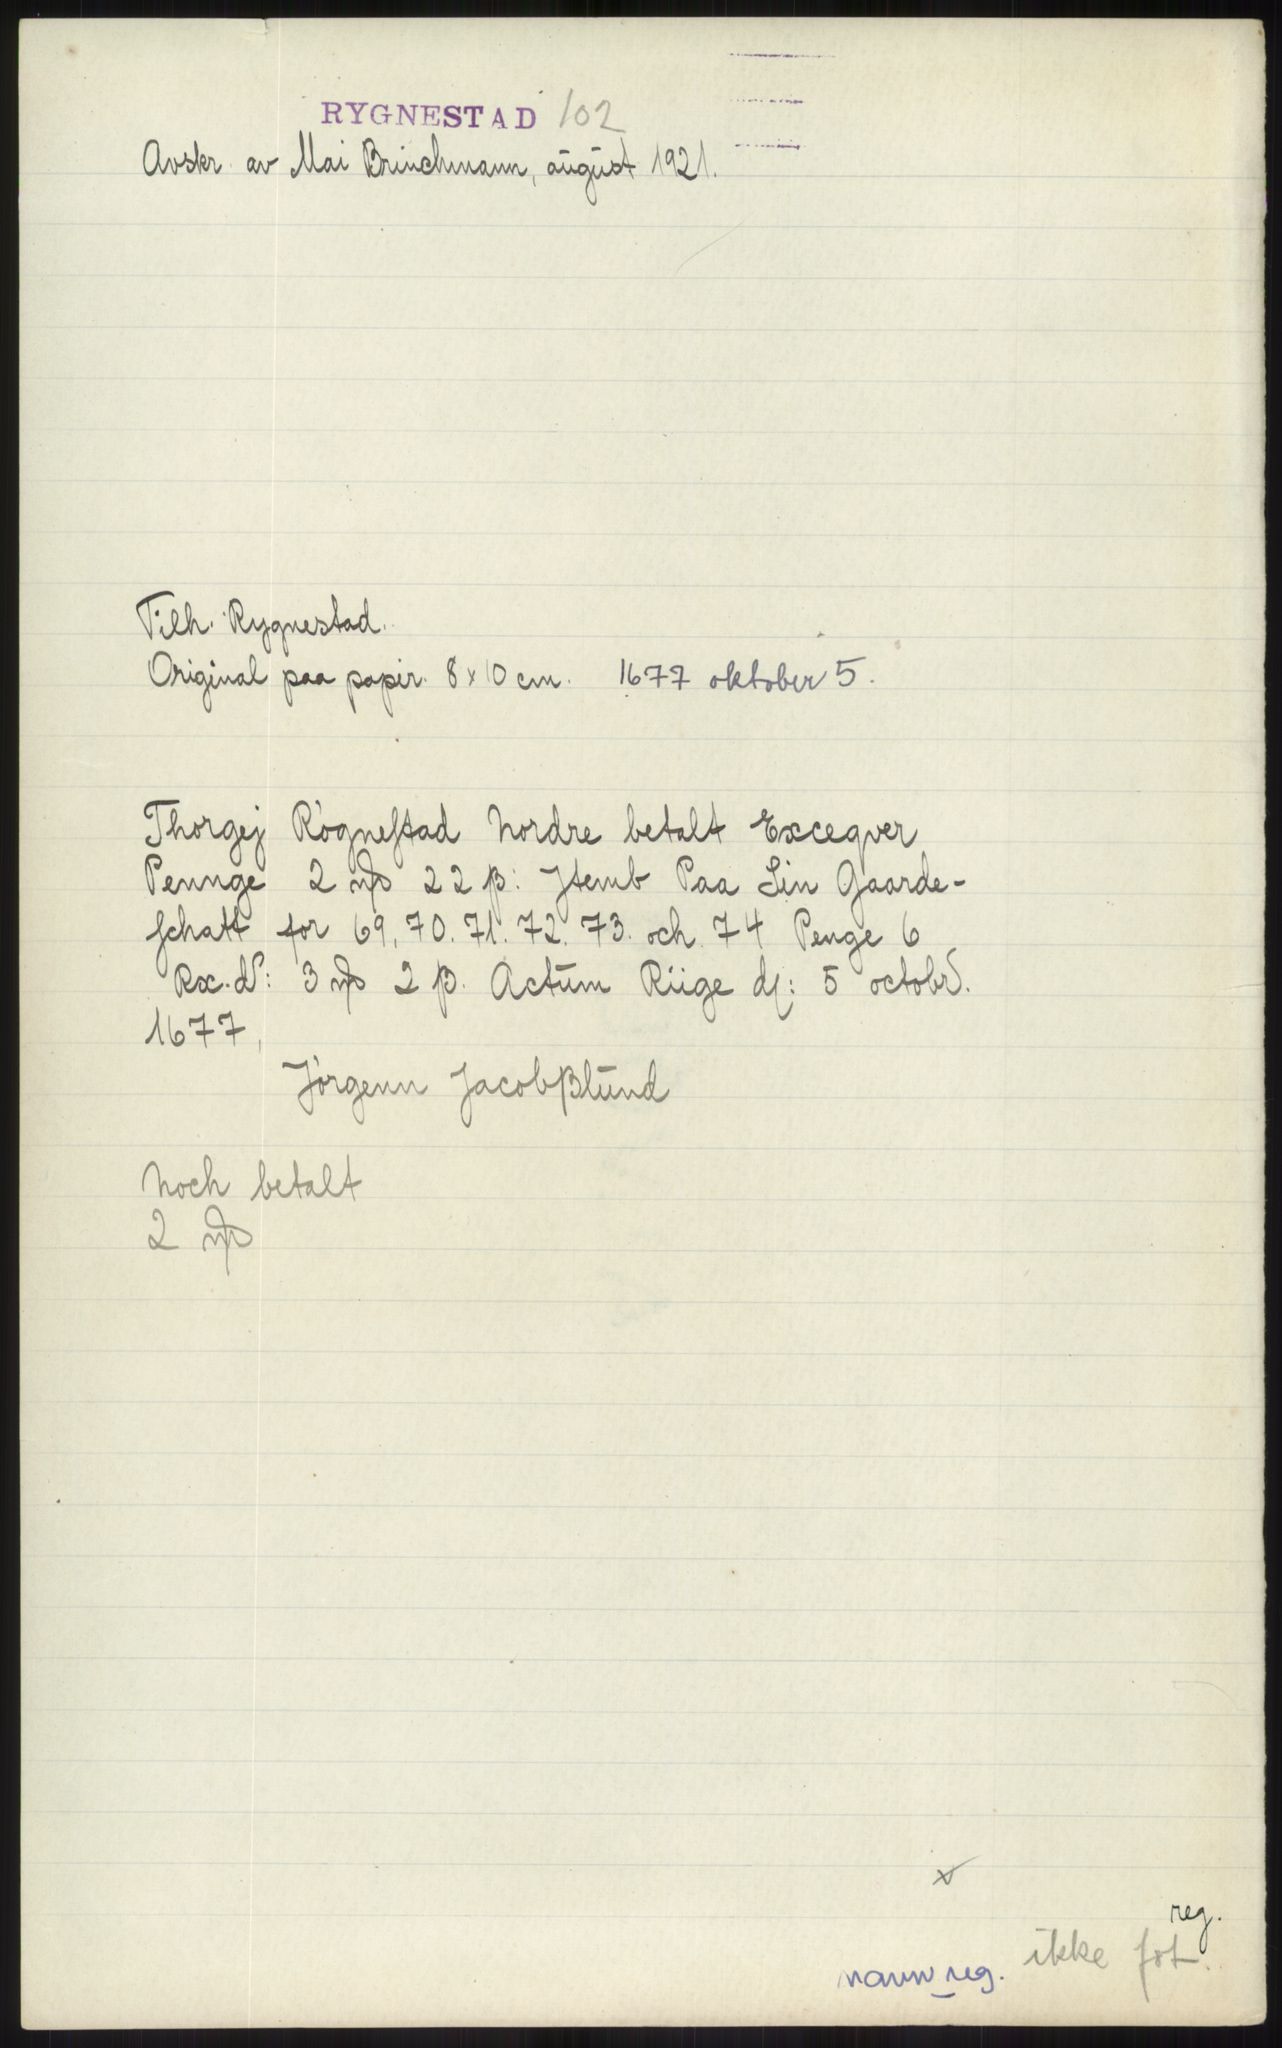 RYGNESTAD 102
Avskr. av Mai Brinchmann, august 1921.
Tilh. Rygnestad.
Original paa papir. 8 x 10 cm. 1677 oktober 5.
Thorgej Rögneſtad Nordre betalt Exceqver
Pennge 2 mſß 22 β: Jtemb Paa Sin Gaarde-
ſchatt for 69, 70. 71. 72. 73. och 74 Penge 6
Rx. dr: 3 2 β. Actum Riige dſ: 5 octobr.
1677,
Jörgenn Jacobβlund
Noch betalt
2
reg.
navn reg. ikke fot.